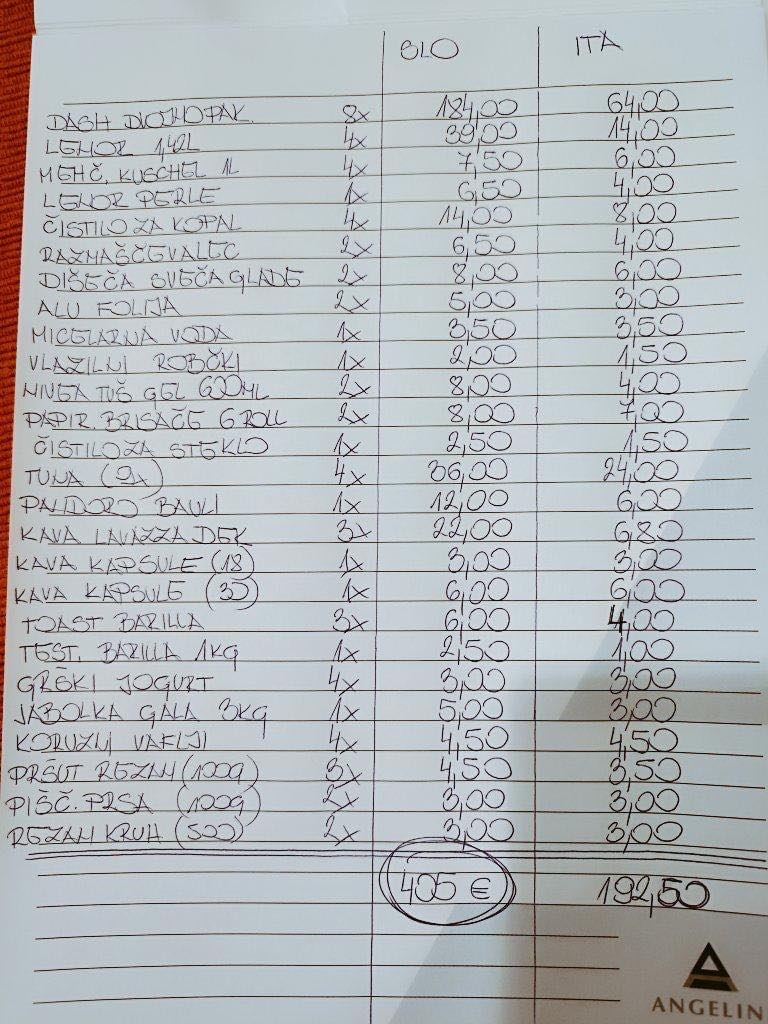 SLO ITA
DASH DVOJNOPAK 8x 184,00 64,00
LENOR 1,42L 4x 39,00 14,00
MEHČ. KUSCHEL 1L 4x 7,50 6,00
LENOR PERLE 1x 6,50 4,00
ČISTILO ZA KOPAL 4x 14,00 8,00
RAZMAŠČEVALEC 2x 6,50 4,00
DIŠEČA SVEČA GLADE 2x 8,00 6,00
ALU FOLIJA 2x 5,00 3,00
MICELARNA VODA 1x 3,50 3,50
VLAŽILNI ROBČKI 1x 2,00 1,50
NIVEA TUŠ GEL 600ML 2x 8,00 4,00
PAPIR. BRISAČE 6 ROLL 2x 8,00 7,00
ČISTILO ZA STEKLO 1x 2,50 1,50
TUNA (9x) 4x 36,00 24,00
PANDORO BAULI 1x 12,00 6,00
KAVA LAVAZZA DEK 3x 22,00 6,80
KAVA KAPSULE (18) 1x 3,00 3,00
KAVA KAPSULE (30) 1x 6,00 6,00
TOAST BARILLA 3x 6,00 4,00
TEST. BARILLA 1KG 1x 2,50 1,00
GRŠKI JOGURT 4x 3,00 3,00
JABOLKA GALA 3KG 1x 5,00 3,00
KORUZNI VAFLJI 4x 4,50 4,50
PRŠUT REZANI (100G) 3x 4,50 3,50
PIŠČ. PRSA (100G) 2x 3,00 3,00
REZANI KRUH (500) 2x 3,00 3,00
405 € 192,50
ANGELIN